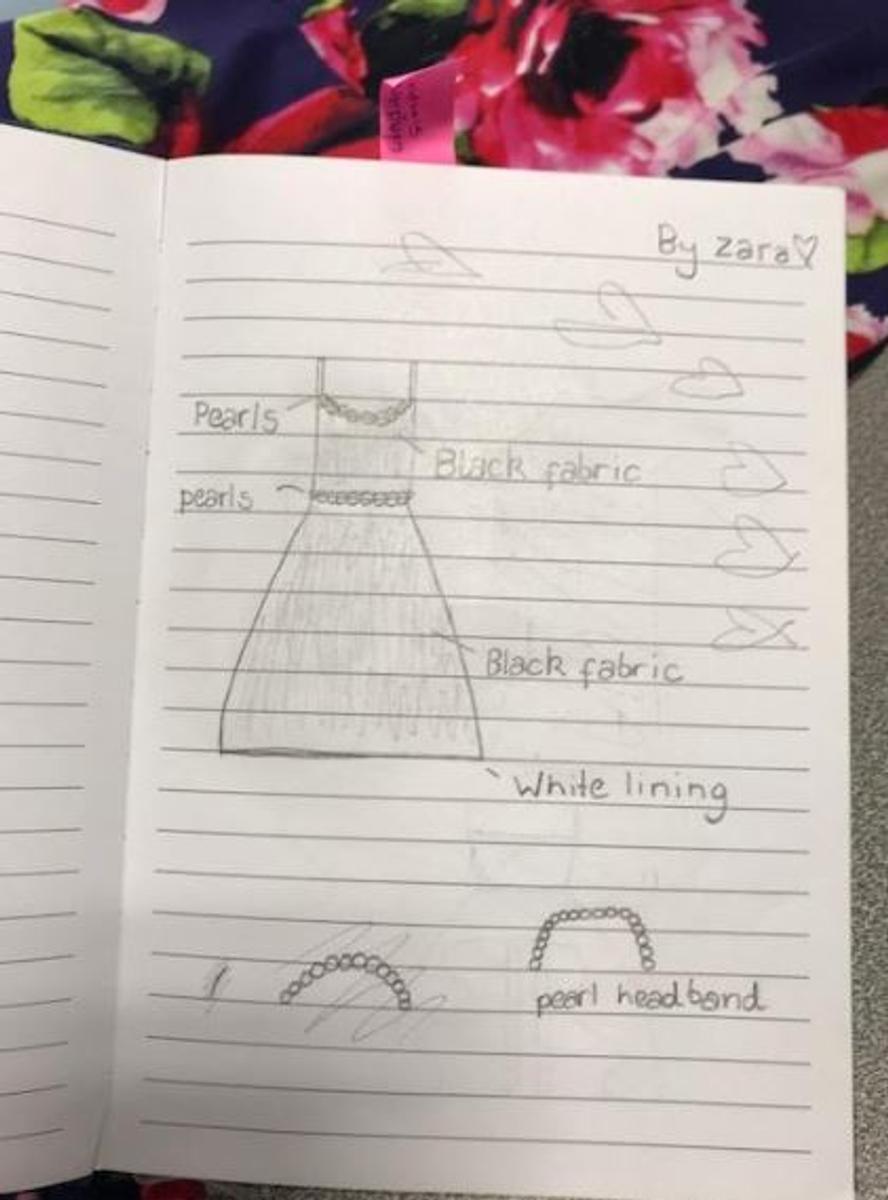 By zara♡
Pearls
Black fabric
pearls
Black fabric
White lining
pearl headband